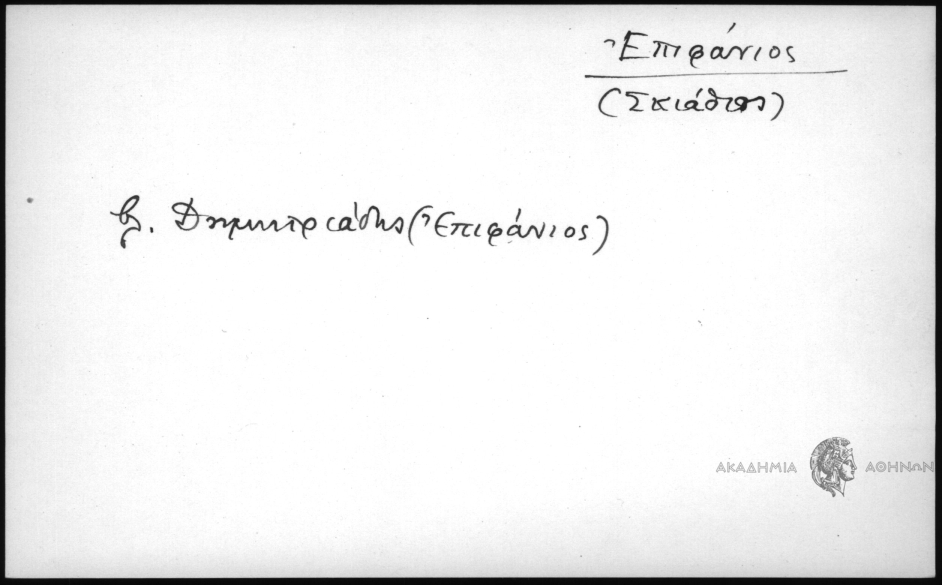 Ἐπιφάνιος
(Σκιάθιος)
βλ. Δημητριάδης (Ἐπιφάνιος)
ΑΚΑΔΗΜΙΑ ΑΘΗΝΩΝ